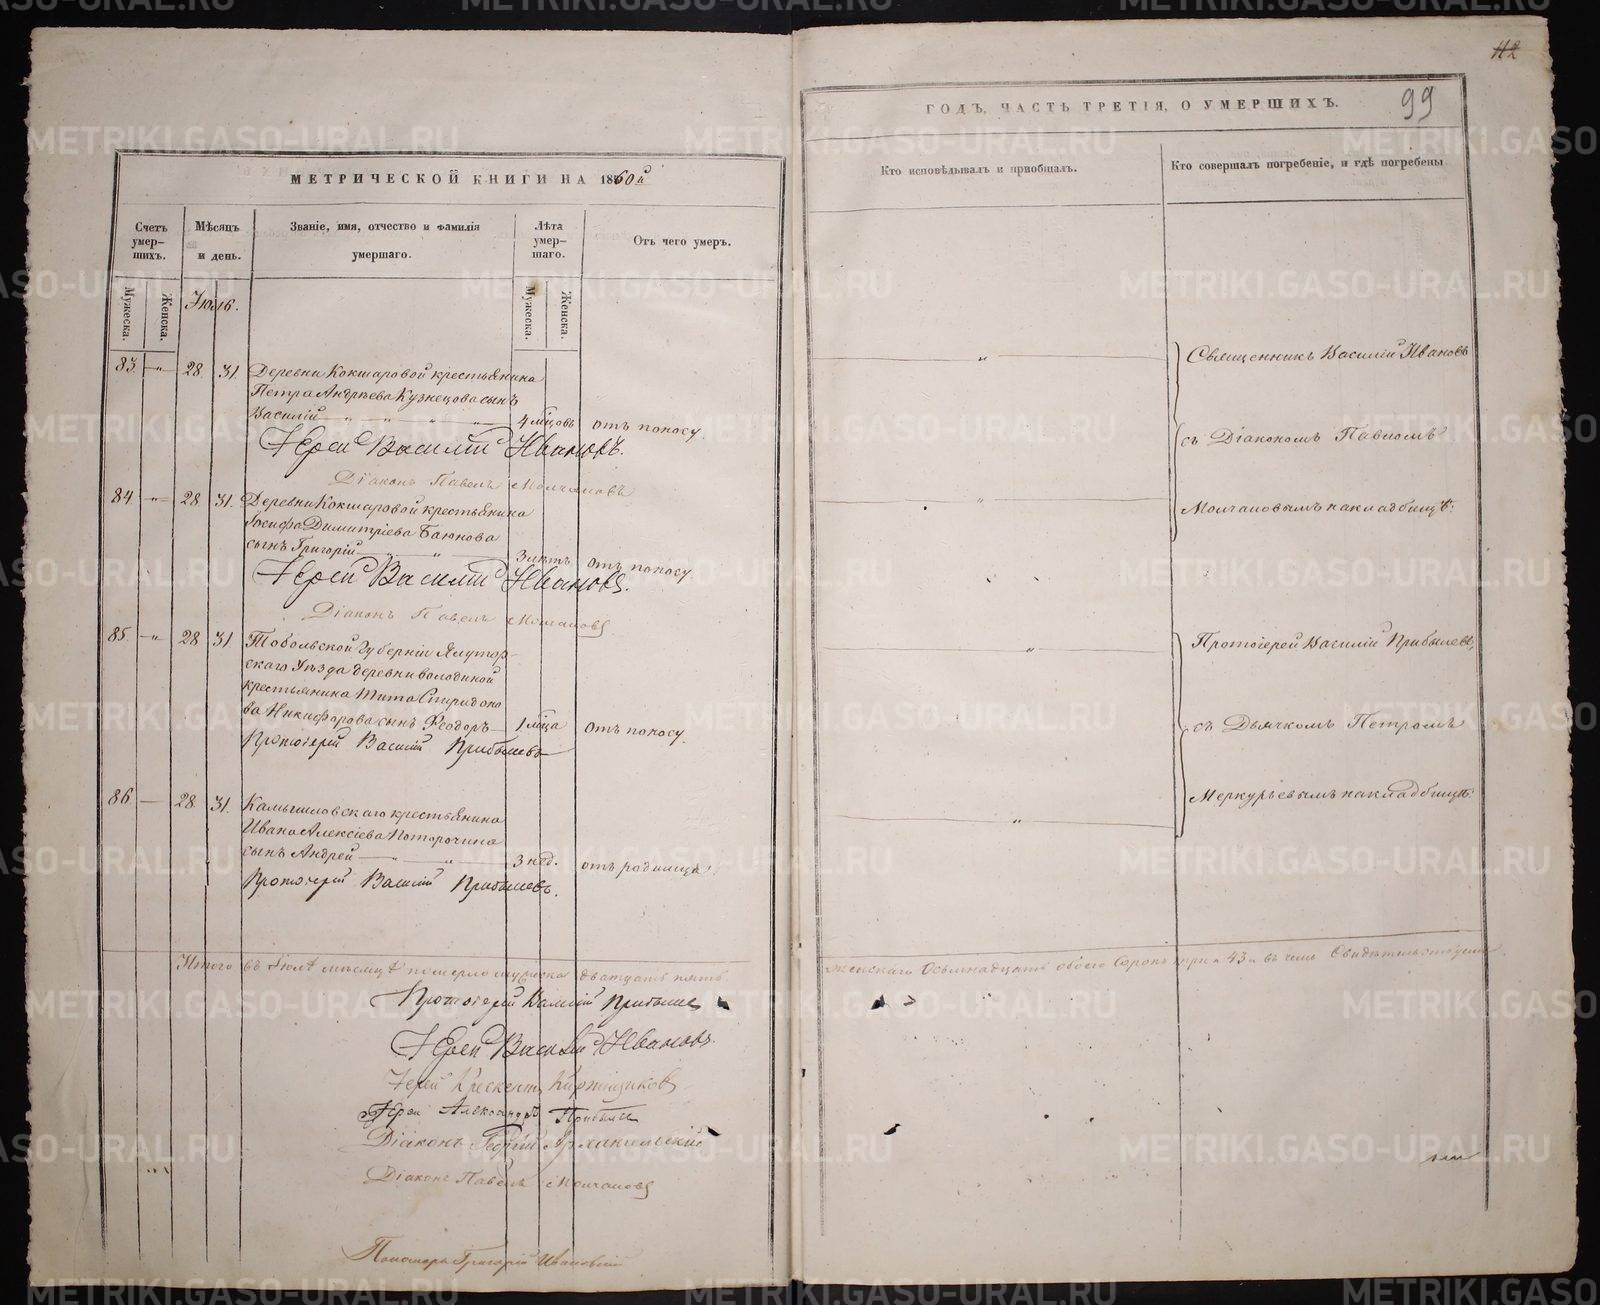 112
МЕТРИЧЕСКОЙ КНИГИ НА 1860й
ГОДЪ, ЧАСТЬ ТРЕТІЯ, О УМЕРШИХЪ.
99
Счетъ умер-шихъ.
Мѣсяцъ и день.
Званіе, имя, отчество и фамилія умершаго.
Лѣта умер-шаго.
Отъ чего умеръ.
Кто исповѣдывалъ и пріобщалъ.
Кто совершалъ погребеніе, и гдѣ погребены
Мужеска.
Женска.
Мужеска.
Женска.
Іюль.
83. — " — 28. 31. Деревни Кокшаровой крестьянина
Петра Андрѣева Кузнецова сынъ
Василій — " — " — " — " — 4 мѣцовъ отъ поносу.
Іерей Василій Ивановъ.
Діаконъ Павелъ Молчановъ
Священникъ Василій Ивановъ
съ Діакономъ Павломъ
Молчановымъ на кладбищѣ.
84 — " — 28 31. Деревни Кокшаровой крестьянина
Іосифа Димитріева Баюнова
сынъ Григорій — " — " — 3 лѣтъ отъ поносу
Іерей Василій Ивановъ.
Діаконъ Павелъ Молчановъ
85. — " — 28 31 Тобольской Губерніи Ялутор-
скаго Уѣзда деревни Володиной
крестьянина Тита Спиридоно
ва Никифорова сынъ Ѳеодоръ — 1 мѣца отъ поносу.
Протоіерей Василій Прибылевъ
Протоіерей Василій Прибылевъ,
съ Дьячкомъ Петромъ
Меркурьевымъ на кладбищѣ.
86 — 28 31. Камышловскаго крестьянина
Ивана Алексіева Поторочина
сынъ Андрей — " — " — 3 нед. отъ родимца
Протоіерей Василій Прибылевъ.
Итого въ Іюлѣ мѣсяцѣ померло мужеска двадцать пять
женскаго Осьмнадцать обоего Сорокъ три " 43 " въ чемъ Свидѣтельствуемъ
Протоіерей Василій Прибылев
Іерей Василій Ивановъ.
Іерей Крескентъ
Іерей Александръ Прибылев
Діаконъ Георгій Архангельскій
Діаконъ Павелъ Молчановъ
Пономарь Григорій Ивановскій
METRIKI.GASO-URAL.RU